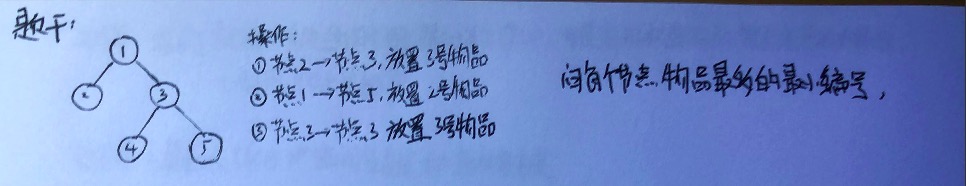 题干:
操作:
①节点2→节点3,放置3号物品
②节点1→节点5,放置2号物品
③节点3→节点3 放置3号物品
问每个节点物品最多的最小编号,
1
2
3
4
5